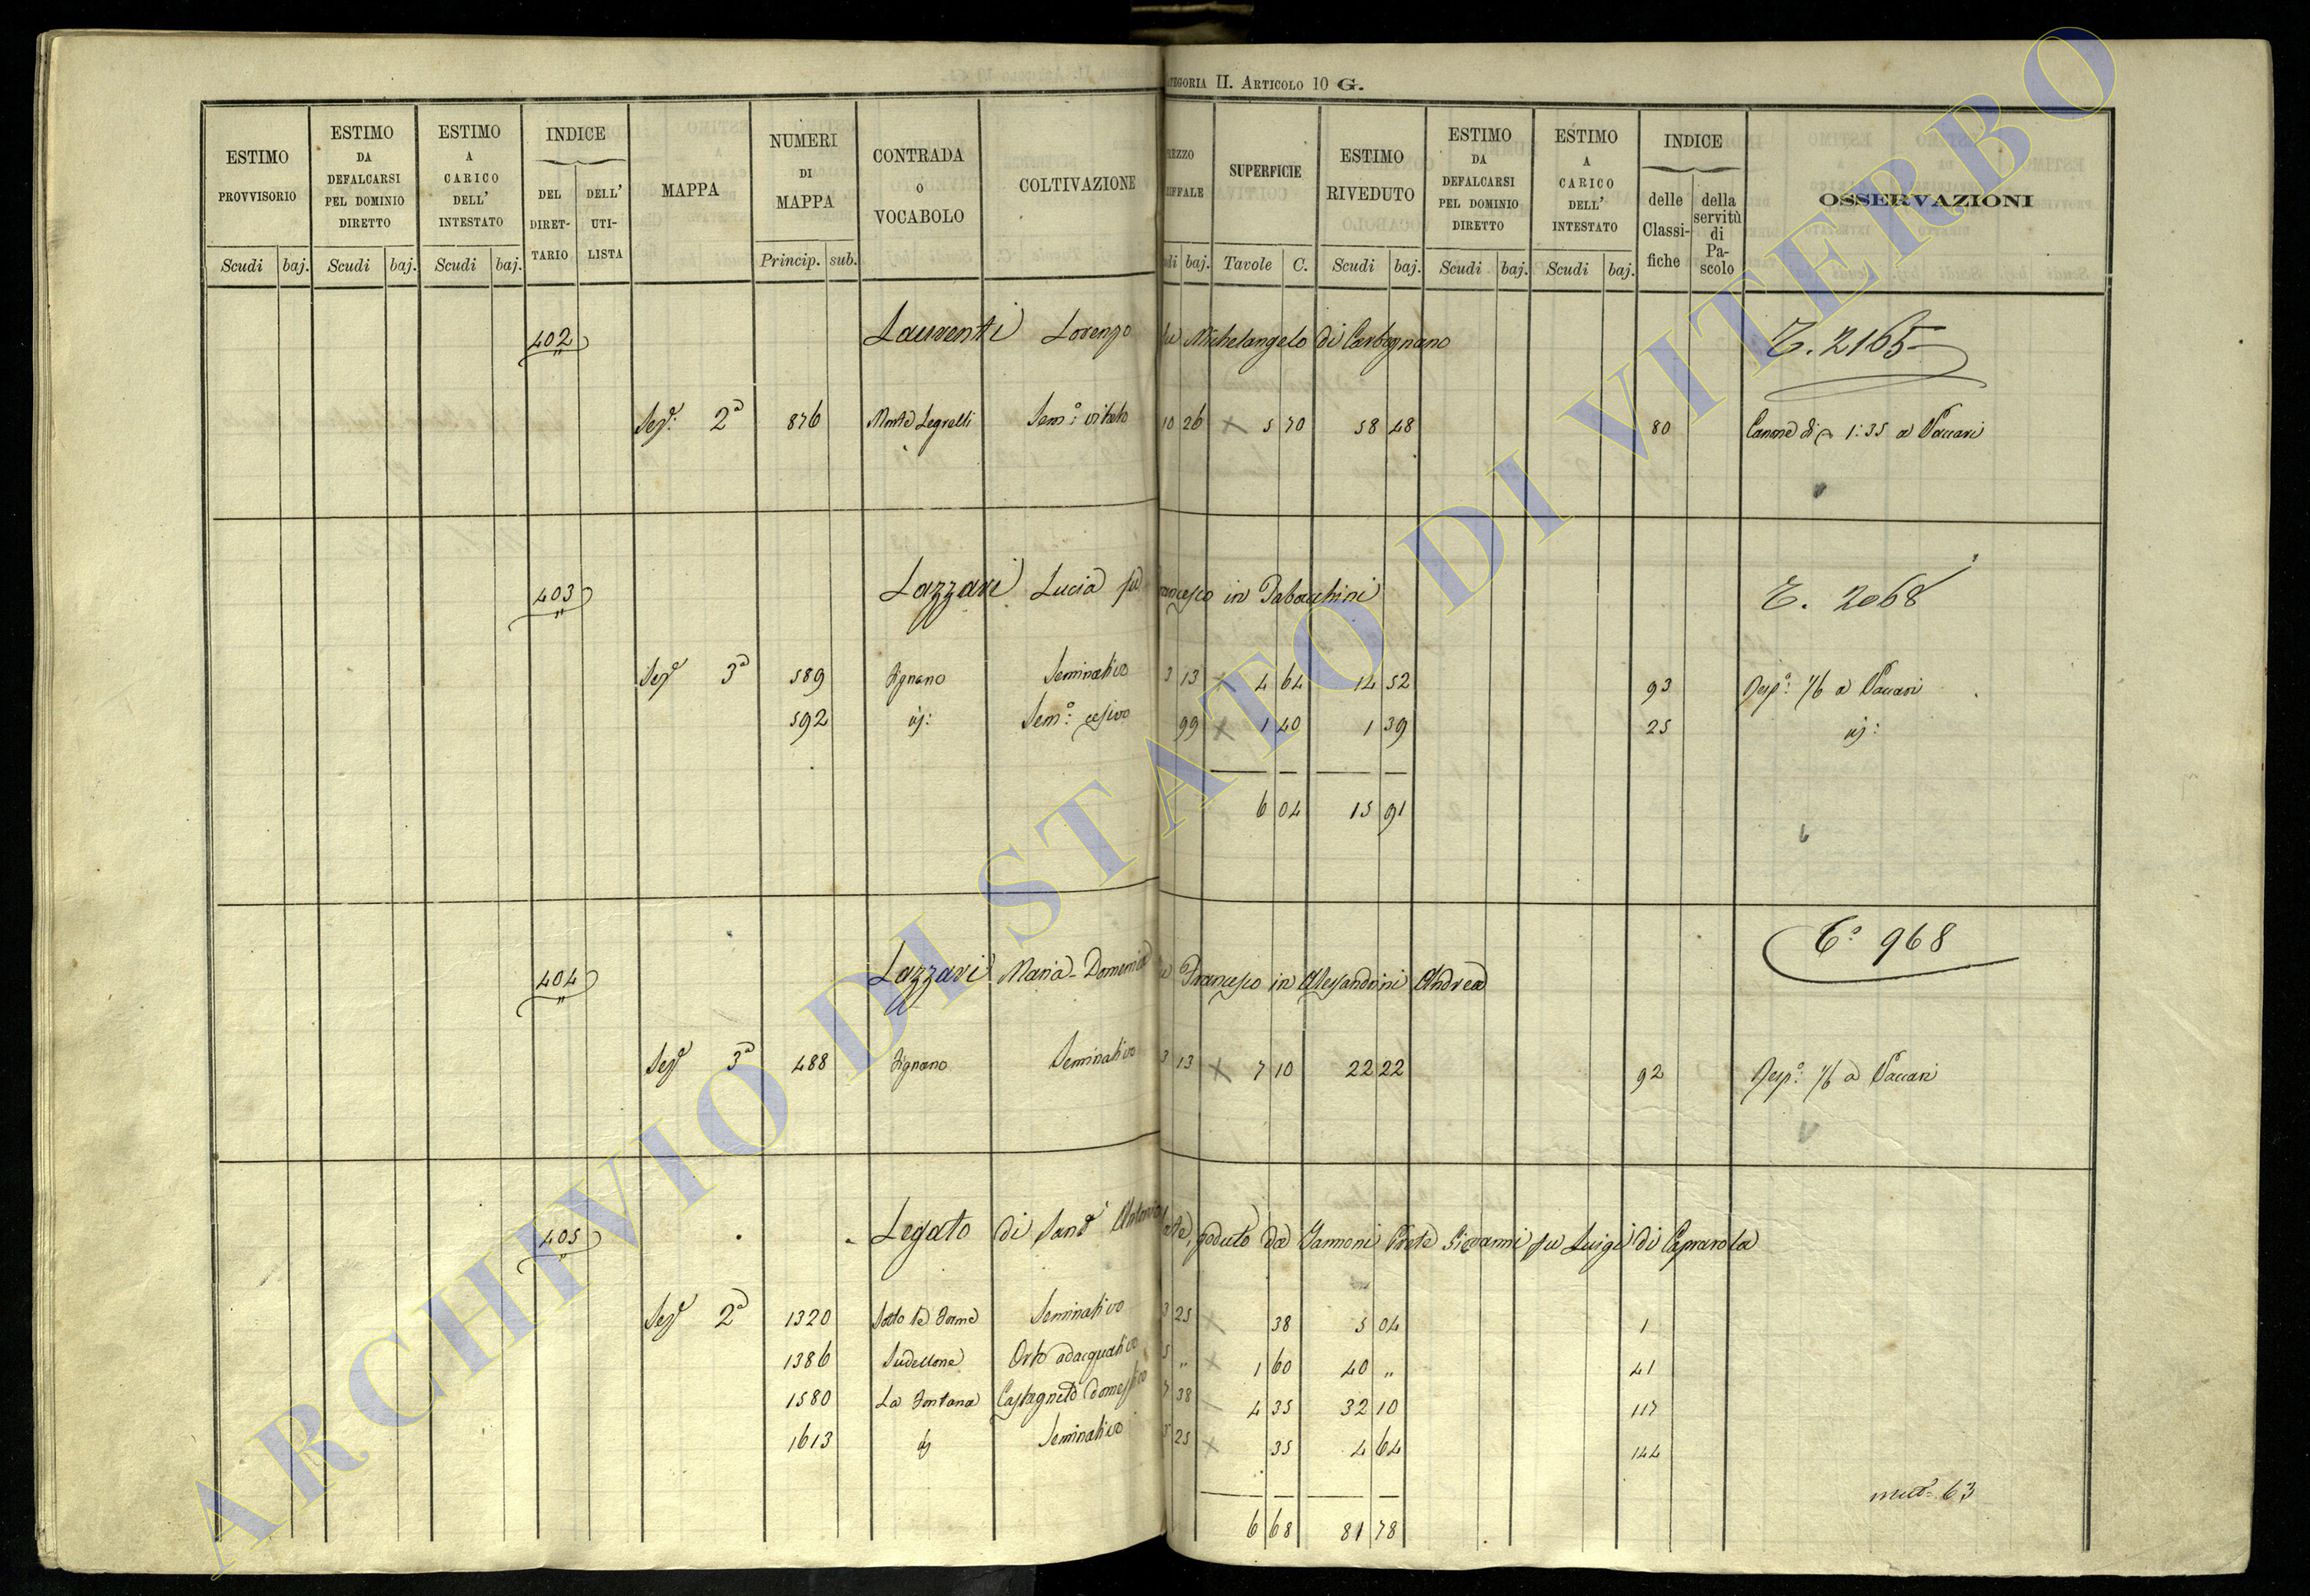 ATEGORIA II. ARTICOLO 10 G.
ESTIMO PROVVISORIO
ESTIMO DA DEFALCARSI PEL DOMINIO DIRETTO
ESTIMO A CARICO DELL' INTESTATO
INDICE
DEL DIRET-TARIO
DELL' UTI-LISTA
MAPPA
NUMERI DI MAPPA
CONTRADA O VOCABOLO
COLTIVAZIONE
REZZO
IFFALE
SUPERFICIE
ESTIMO RIVEDUTO
ESTIMO DA DEFALCARSI PEL DOMINIO DIRETTO
ESTIMO A CARICO DELL' INTESTATO
INDICE
delle Classi-fiche
della servitù di Pa-scolo
OSSERVAZIONI
Scudi baj. Scudi baj. Scudi baj. Princip. sub. di baj. Tavole C. Scudi baj. Scudi baj. Scudi baj.
402 Laurenti Lorenzo fu Michelangelo di Carbognano 2165
Sez.e 2a 876 Sem.o: vitato 10 26 5 70 58 48 80 Canone di 1:35 a Vaccari
403 Lazzari Lucia fu Francesco in Tabacchini 2068
Seze 3a 589 Fignano Seminativo 3 13 4 64 14 52 93 Resp.o: 1/6 a Vaccari
592 Sem.o: 99 1 40 1 39 25
6 04 15 91
404 Lazzari Maria-Domenica fu Francesco in Alessandrini Andrea 968
Seze 3a 488 Fignano Seminativo 3 13 7 10 22 22 92 Resp.o: 1/6 a Vaccari
405 Legato di Sant' Antonio goduto da Jannoni Prete Giovanni fu Luigi di Caprarola
Seze 2a 1320 Sotto le Seminativo 3 25 38 5 04 1
1386 Orto adacquativo 5 „ 1 60 40 „ 41
1580 La Fontana Castagneto domestico 7 38 4 35 32 10 117
1613 Seminativo 3 25 35 4 64 144
63
6 68 81 78
ARCHIVIO DI STATO DI VITERBO